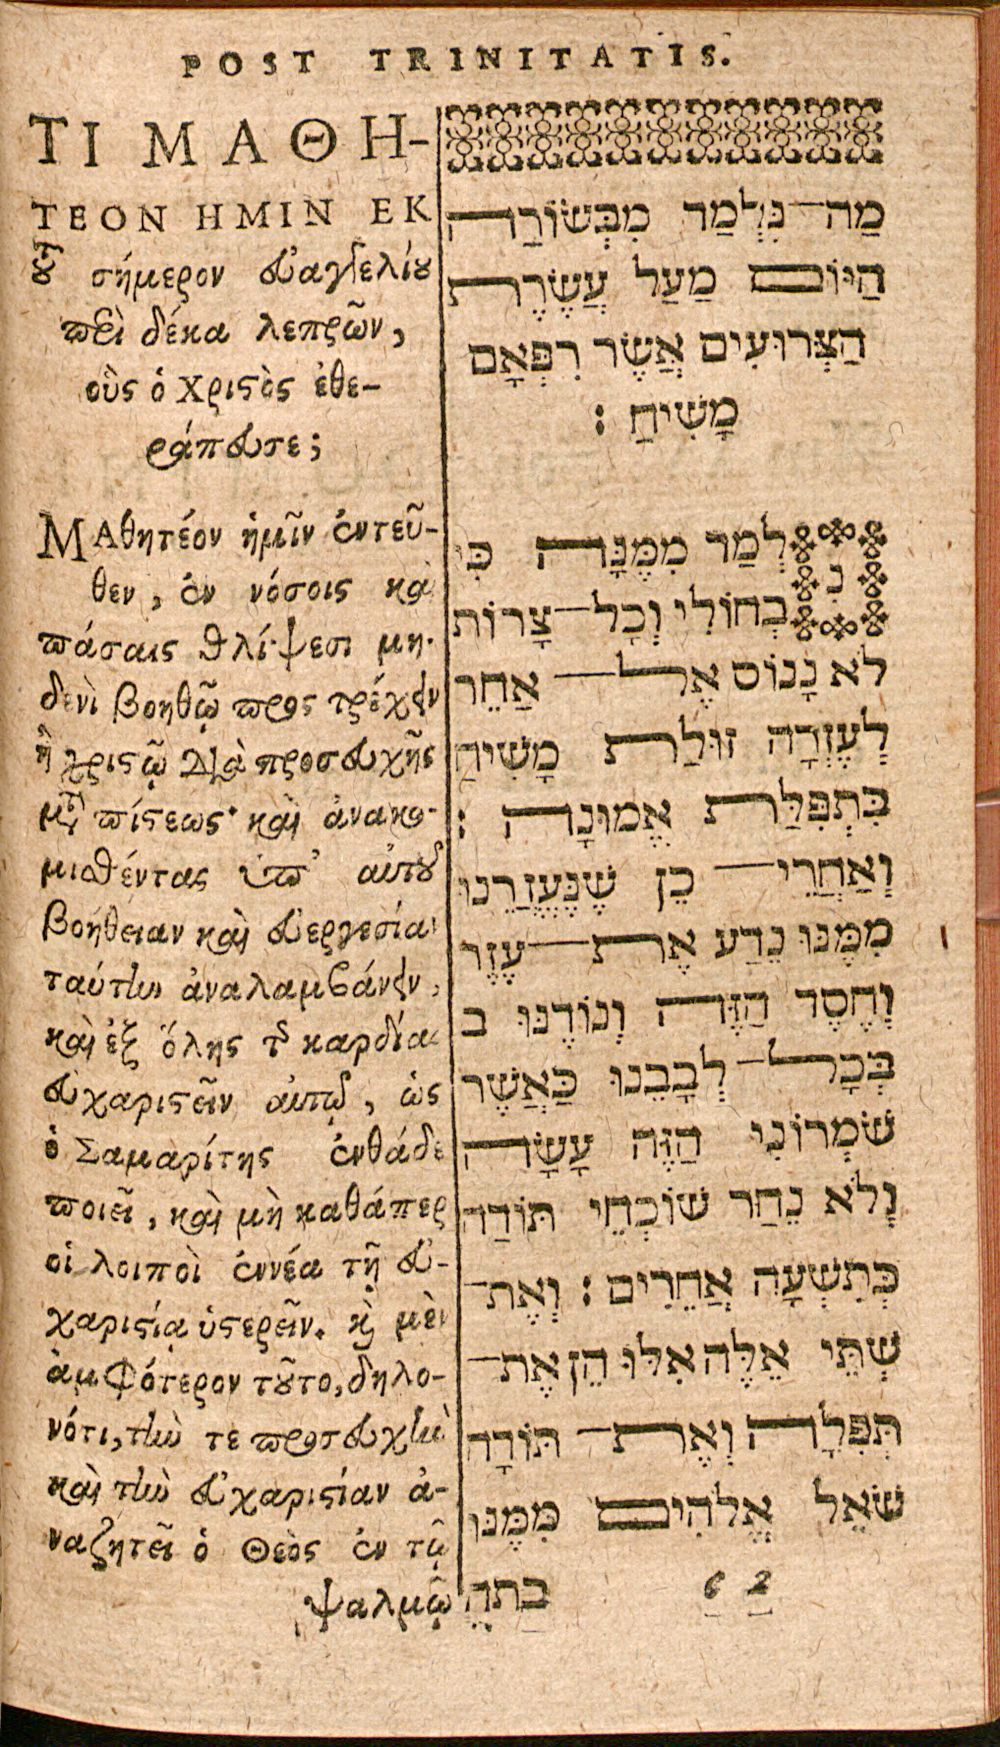 POST TRINITATIS.
ΤΙ ΜΑΘΗ-
ΤΕΟΝ ΗΜΙΝ ΕΚ
τοῦ σήμερον εὐαγγελίου
περὶ δέκα λεπρῶν,
οὓς ὁ Χριστὸς ἐθε-
ράπευσε;
ΜΑθητέον ἡμῖν ἐντεῦ-
θεν, ἐν νόσοις καὶ
πάσαις θλίψεσι μη-
δενὶ βοηθῷ προστρέχειν
ἢ χριστῷ διὰ προσευχῆς
μετὰ πίστεως· καὶ ἀνακο-
μισθέντας ὑπ’ αὐτοῦ
βοήθειαν καὶ εὐεργεσίαν
ταύτην ἀναλαμβάνειν,
καὶ ἐξ ὅλης τῆς καρδίας
εὐχαριστεῖν αὐτῷ, ὡς
ὁ Σαμαρίτης ἐνθάδε
ποιεῖ, καὶ μὴ καθάπερ
οἱ λοιποὶ ἐννέα τῇ εὐ-
χαριστίᾳ ὑστερεῖν. καὶ μὲν
ἀμφότερον τοῦτο, δηλο-
νότι, τήν τε προσευχὴν
καὶ τὴν εὐχαριστίαν ἀ-
ναζητεῖ ὁ Θεὸς ἐν τῷ
ψαλμῷ
מַה־נִּלְמַד מִבְּשׂוֹרַה
הַיּוֹם מַעַל עֲשֶׂרֶת
הַצְּרוּעִים אֲשֶׂר רִפְּאָם
מָשִׁיחַ :
נִלְמַד מִמֶּנָּה כִּי
בְּחוֹלִי וְכָל־צָרוֹת
לֹא נָנוּס אֶל־אַחֵר
לָעֶזְרָה זוּלַת מָשִׁיחַ
בִּתְפִלַּת אֱמוּנָה :
וְאַחֲרֵי־כֵן שֶׁנֶּעֱזָרֵנוּ
מִמֶּנּוּ נֵדַע אֶת־עֶזֶר
וָחֶסֶד הַזֶּה וְנוֹדֶנּוּ ב
בְּכָל־לְבָבֵנוּ כַּאֲשֶׁר
שֹׁמְרוֹנִי הַזֶּה עָשָׂה
וָלֹא נֵחַר שׁוֹכְחֵי תּוֹדַה
כְּתִשְׁעָה אֲחֵרִים : וְאֶת־
שְׁתֵּי אֵלֶּה אִלּוּ הֵן אֶת־
תְּפִלָּה וְאֶת־תּוֹדָה
שֹׁאֵל אֱלֹהִים מִמֶּנּוּ
6 2